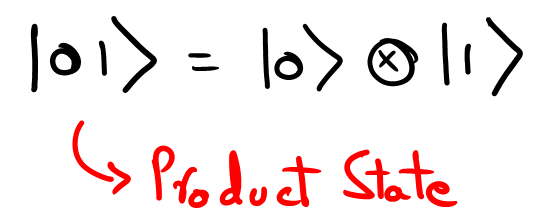 |01⟩ = |0⟩ ⊗ |1⟩
Product State